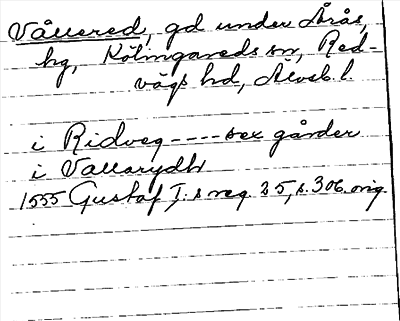 Vållered, gd under Årås,
hg, Kölingareds sn, Red-
vägs hd, Älvsb. l.
i Ridveg ---- sex gårder
i Vallarydh
1555 Gustaf I:s reg. 25, s. 306. orig.